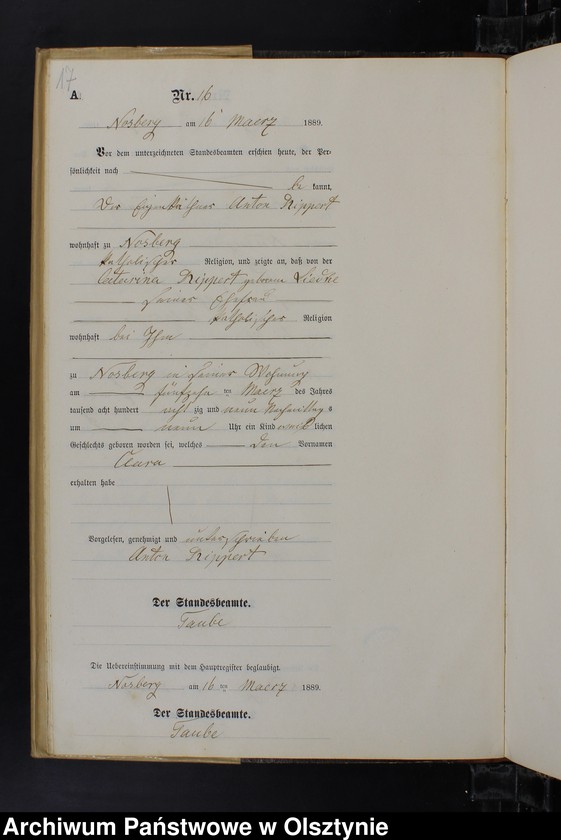 17
A. Nr. 16
am 16 Maerz 1889.
Vor dem unterzeichneten Standesbeamten erschien heute, der Per-
sönlichkeit nach
be kannt,
Der Eigenkäthner Anton
wohnhaft zu
katholischer Religion, und zeigte an, daß von der
Caturina geborene Liedke
seiner Ehefrau
katholischer Religion
wohnhaft bei Ihm
zu in seiner Wohnung
am fünfzehn ten Maerz des Jahres
tausend acht hundert acht zig und neun Nachmittag s
um neun Uhr ein Kind lichen
Geschlechts geboren worden sei, welches den Vornamen
Clara
erhalten habe
Vorgelesen, genehmigt und unterschrieben
Anton
Der Standesbeamte.
Taube
Die Uebereinstimmung mit dem Hauptregister beglaubigt.
am 16 ten Maerz 1889.
Der Standesbeamte.
Taube
Archiwum Państwowe w Olsztynie